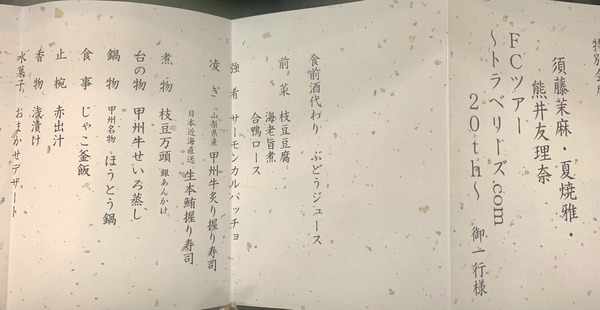 特別会席
須藤茉麻・夏焼雅・
熊井友理奈
FCツアー
～トラベリーズ.com
20th～ 御一行様
食前酒代わり ぶどうジュース
前菜 枝豆豆腐
海老旨煮
合鴨ロース
強肴 サーモンカルパッチョ
凌ぎ 山梨県産 甲州牛炙り握り寿司
日本近海直送 生本鮪握り寿司
煮物 枝豆万頭 銀あんかけ
台の物 甲州牛せいろ蒸し
鍋物 甲州名物 ほうとう鍋
食事 じゃこ釜飯
止椀 赤出汁
香物 浅漬け
水菓子 おまかせデザート